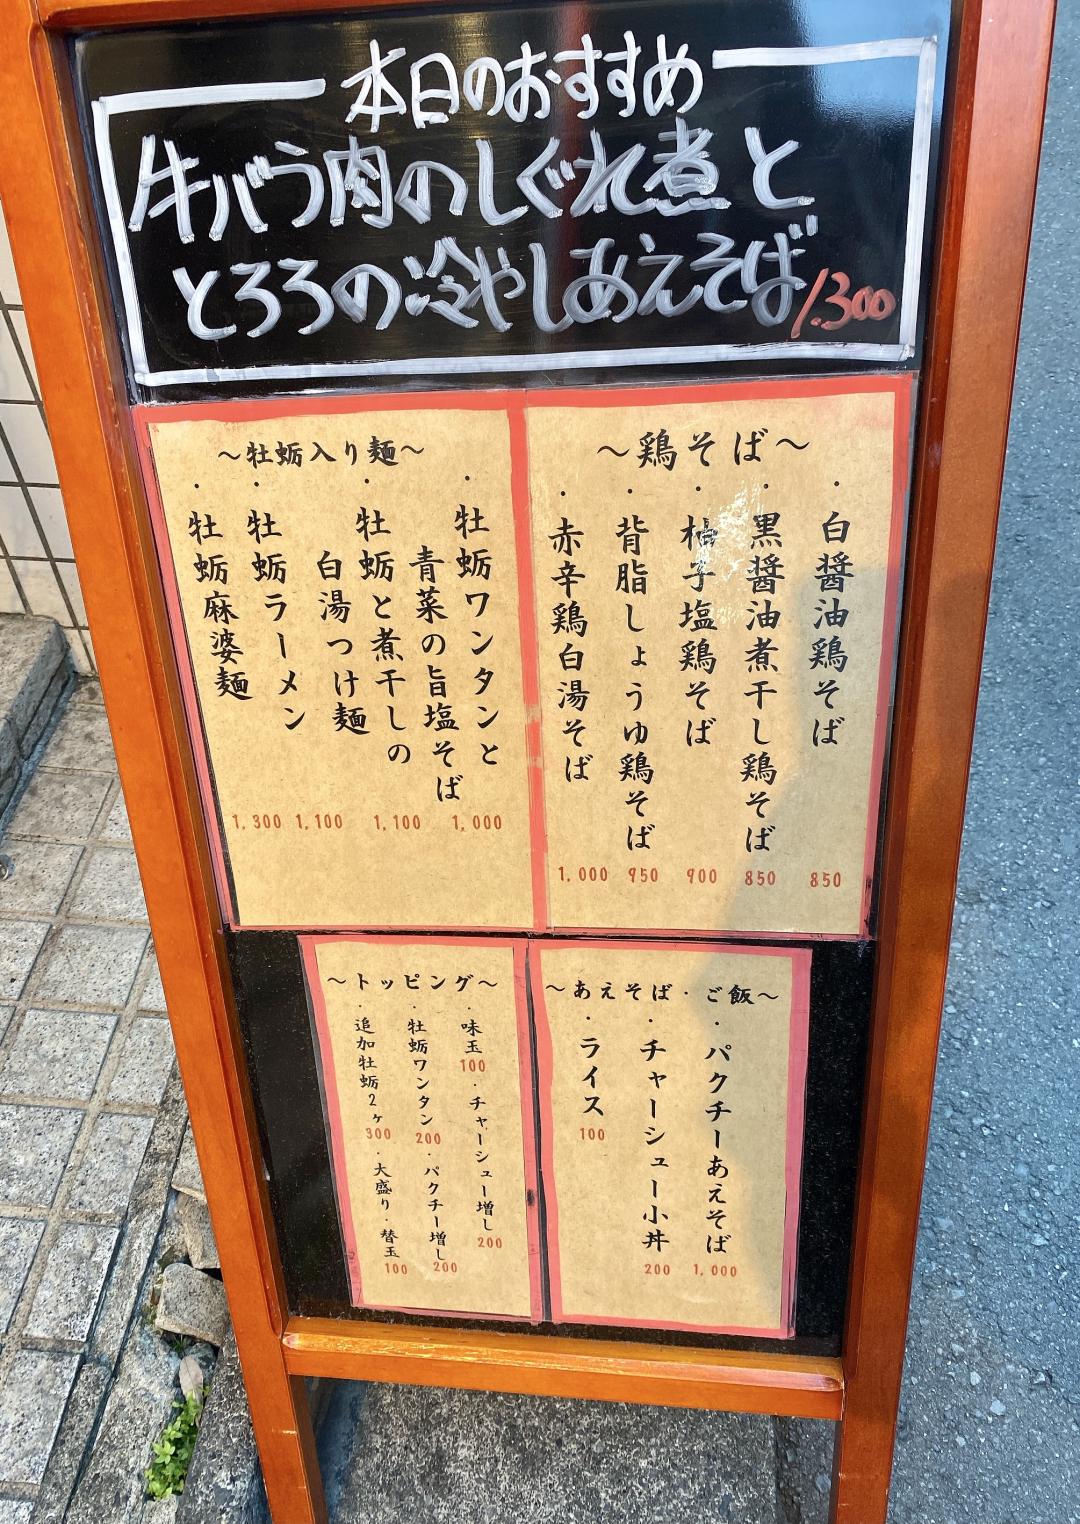 本日のおすすめ
牛バラ肉のしぐれ煮と
とろろの冷やしあえそば
1.300
～鶏そば～
・白醤油鶏そば
850
・黒醤油煮干し鶏そば
850
・柚子塩鶏そば
900
・背脂しょうゆ鶏そば
950
・赤辛鶏白湯そば
1,000
～牡蛎入り麺～
・牡蛎ワンタンと
青菜の旨塩そば
1,000
・牡蛎と煮干しの
白湯つけ麺
1,100
・牡蛎ラーメン
1,100
・牡蛎麻婆麺
1,300
～あえそば・ご飯～
・パクチーあえそば
1,000
・チャーシュー小丼
200
・ライス
100
～トッピング～
・味玉
100
・チャーシュー増し
200
・牡蛎ワンタン
200
・パクチー増し
200
・追加牡蛎2ヶ
300
・大盛り・替玉
100